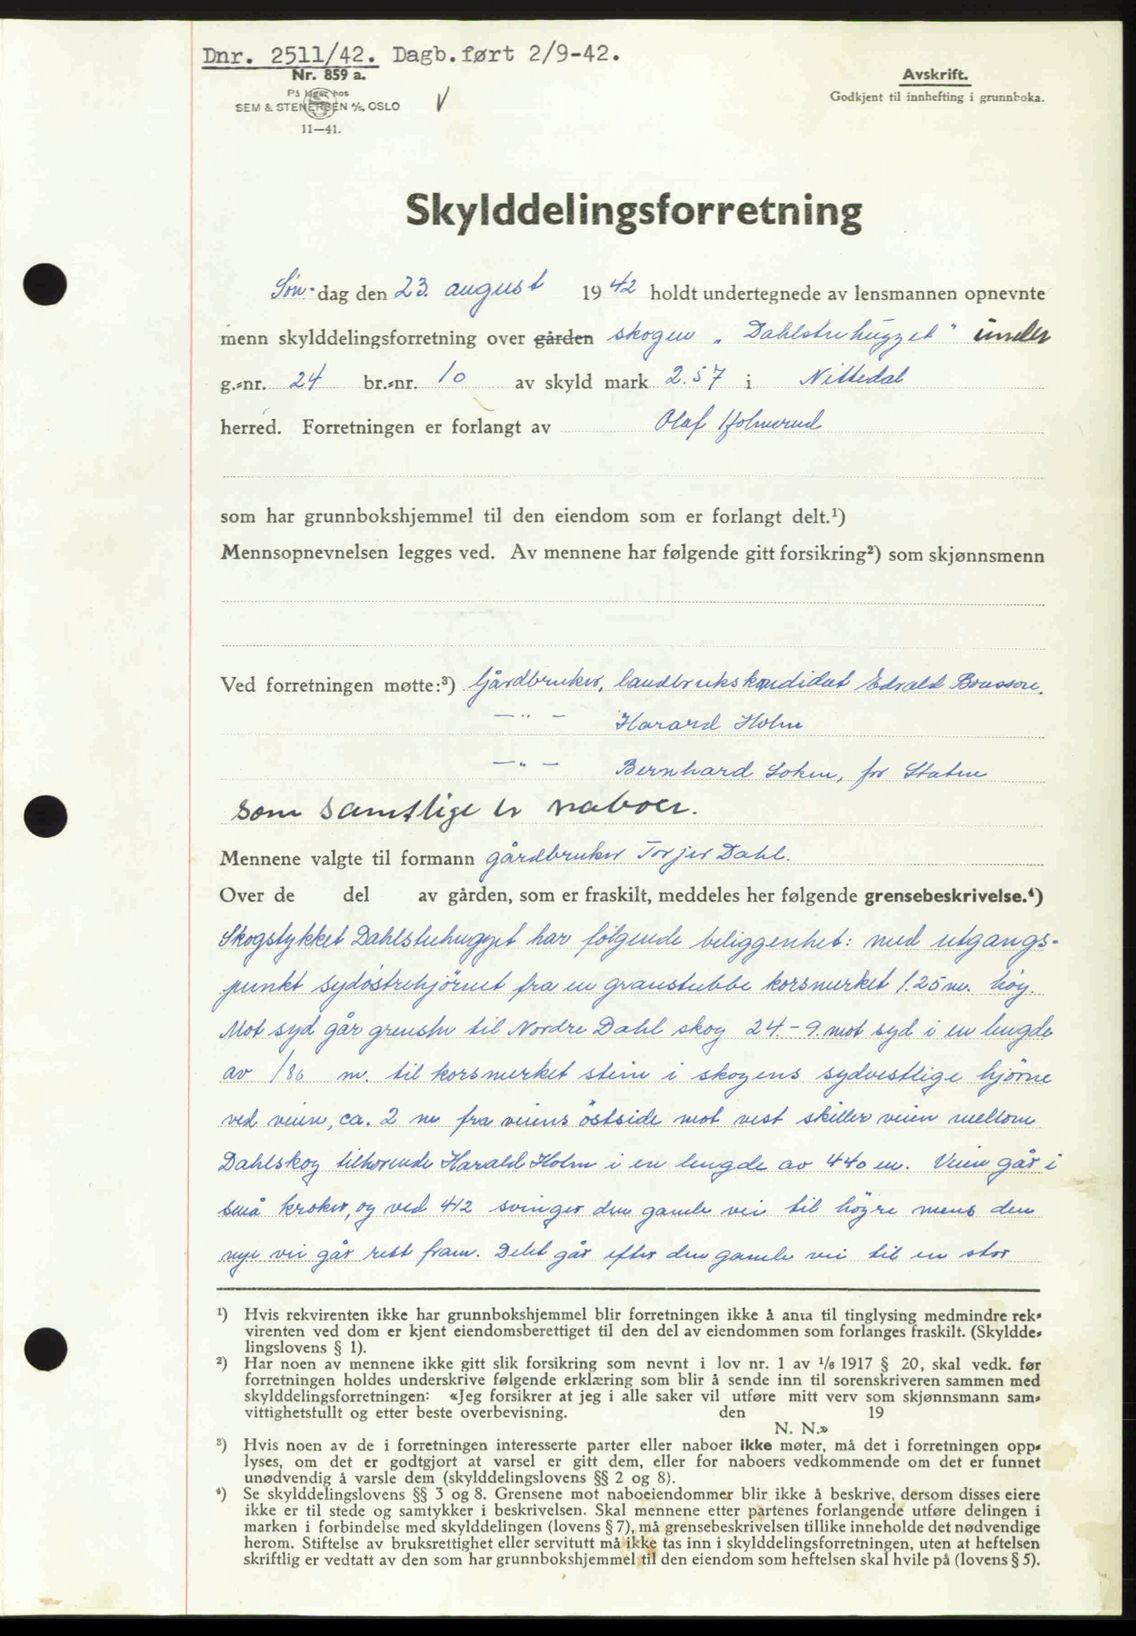 Dnr. 2511/42. Dagb.ført 2/9-42.
Nr. 859 a.
På lager hos
SEM & STENERSEN A/S, OSLO
11—41.
Avskrift.
Godkjent til innhefting i grunnboka.
Skylddelingsforretning
Søn-dag den 23. august 1942 holdt undertegnede av lensmannen opnevnte
menn skylddelingsforretning over gården skogen „Dahlstuhugget" under
g.-nr. 24 br.-nr. 10 av skyld mark 2.57 i Nittedal
herred. Forretningen er forlangt av Olaf Holmerud
som har grunnbokshjemmel til den eiendom som er forlangt delt.¹)
Mennsopnevnelsen legges ved. Av mennene har følgende gitt forsikring²) som skjønnsmenn
Ved forretningen møtte:³) Gårdbruker, landbrukskandidat Edvald
—"— Harard Holm
—"— Bernhard Loken, for Staten
som samtlige er naboer.
Mennene valgte til formann gårdbruker Torjer Dahl.
Over de del av gården, som er fraskilt, meddeles her følgende grensebeskrivelse.⁴)
Skogstykket Dahlstuhugget har følgende beliggenhet: med utgangs-
punkt sydöstrehjörnet fra en granstubbe korsmerket 1.25 m. høy.
Mot syd går grensen til Nordre Dahl skog 24.-9. mot syd i en lengde
av 180 m. til korsmerket stein i skogens sydvestlige hjörne
ved veien, ca. 2 m fra veiens östside mot vest skiller veien mellom
Dahlskog tilhørende Harald Holm i en lengde av 440 m. Veien går i
små kroker, og ved 412 svinger den gamle vei til högre mens den
nye vei går rett fram. Delet går efter den gamle vei til en stor
¹) Hvis rekvirenten ikke har grunnbokshjemmel blir forretningen ikke å anta til tinglysing medmindre rek-
virenten ved dom er kjent eiendomsberettiget til den del av eiendommen som forlanges fraskilt. (Skyldde-
lingslovens § 1).
²) Har noen av mennene ikke gitt slik forsikring som nevnt i lov nr. 1 av 1/6 1917 § 20, skal vedk. før
forretningen holdes underskrive følgende erklæring som blir å sende inn til sorenskriveren sammen med
skylddelingsforretningen: «Jeg forsikrer at jeg i alle saker vil utføre mitt verv som skjønnsmann sam-
vittighetsfullt og etter beste overbevisning. den 19
N. N.»
³) Hvis noen av de i forretningen interesserte parter eller naboer ikke møter, må det i forretningen opp-
lyses, om det er godtgjort at varsel er gitt dem, eller for naboers vedkommende om det er funnet
unødvendig å varsle dem (skylddelingslovens §§ 2 og 8).
⁴) Se skylddelingslovens §§ 3 og 8. Grensene mot naboeiendommer blir ikke å beskrive, dersom disses eiere
ikke er til stede og samtykker i beskrivelsen. Skal mennene etter partenes forlangende utføre delingen i
marken i forbindelse med skylddelingen (lovens § 7), må grensebeskrivelsen tillike inneholde det nødvendige
herom. Stiftelse av bruksrettighet eller servitutt må ikke tas inn i skylddelingsforretningen, uten at heftelsen
skriftlig er vedtatt av den som har grunnbokshjemmel til den eiendom som heftelsen skal hvile på (lovens § 5).